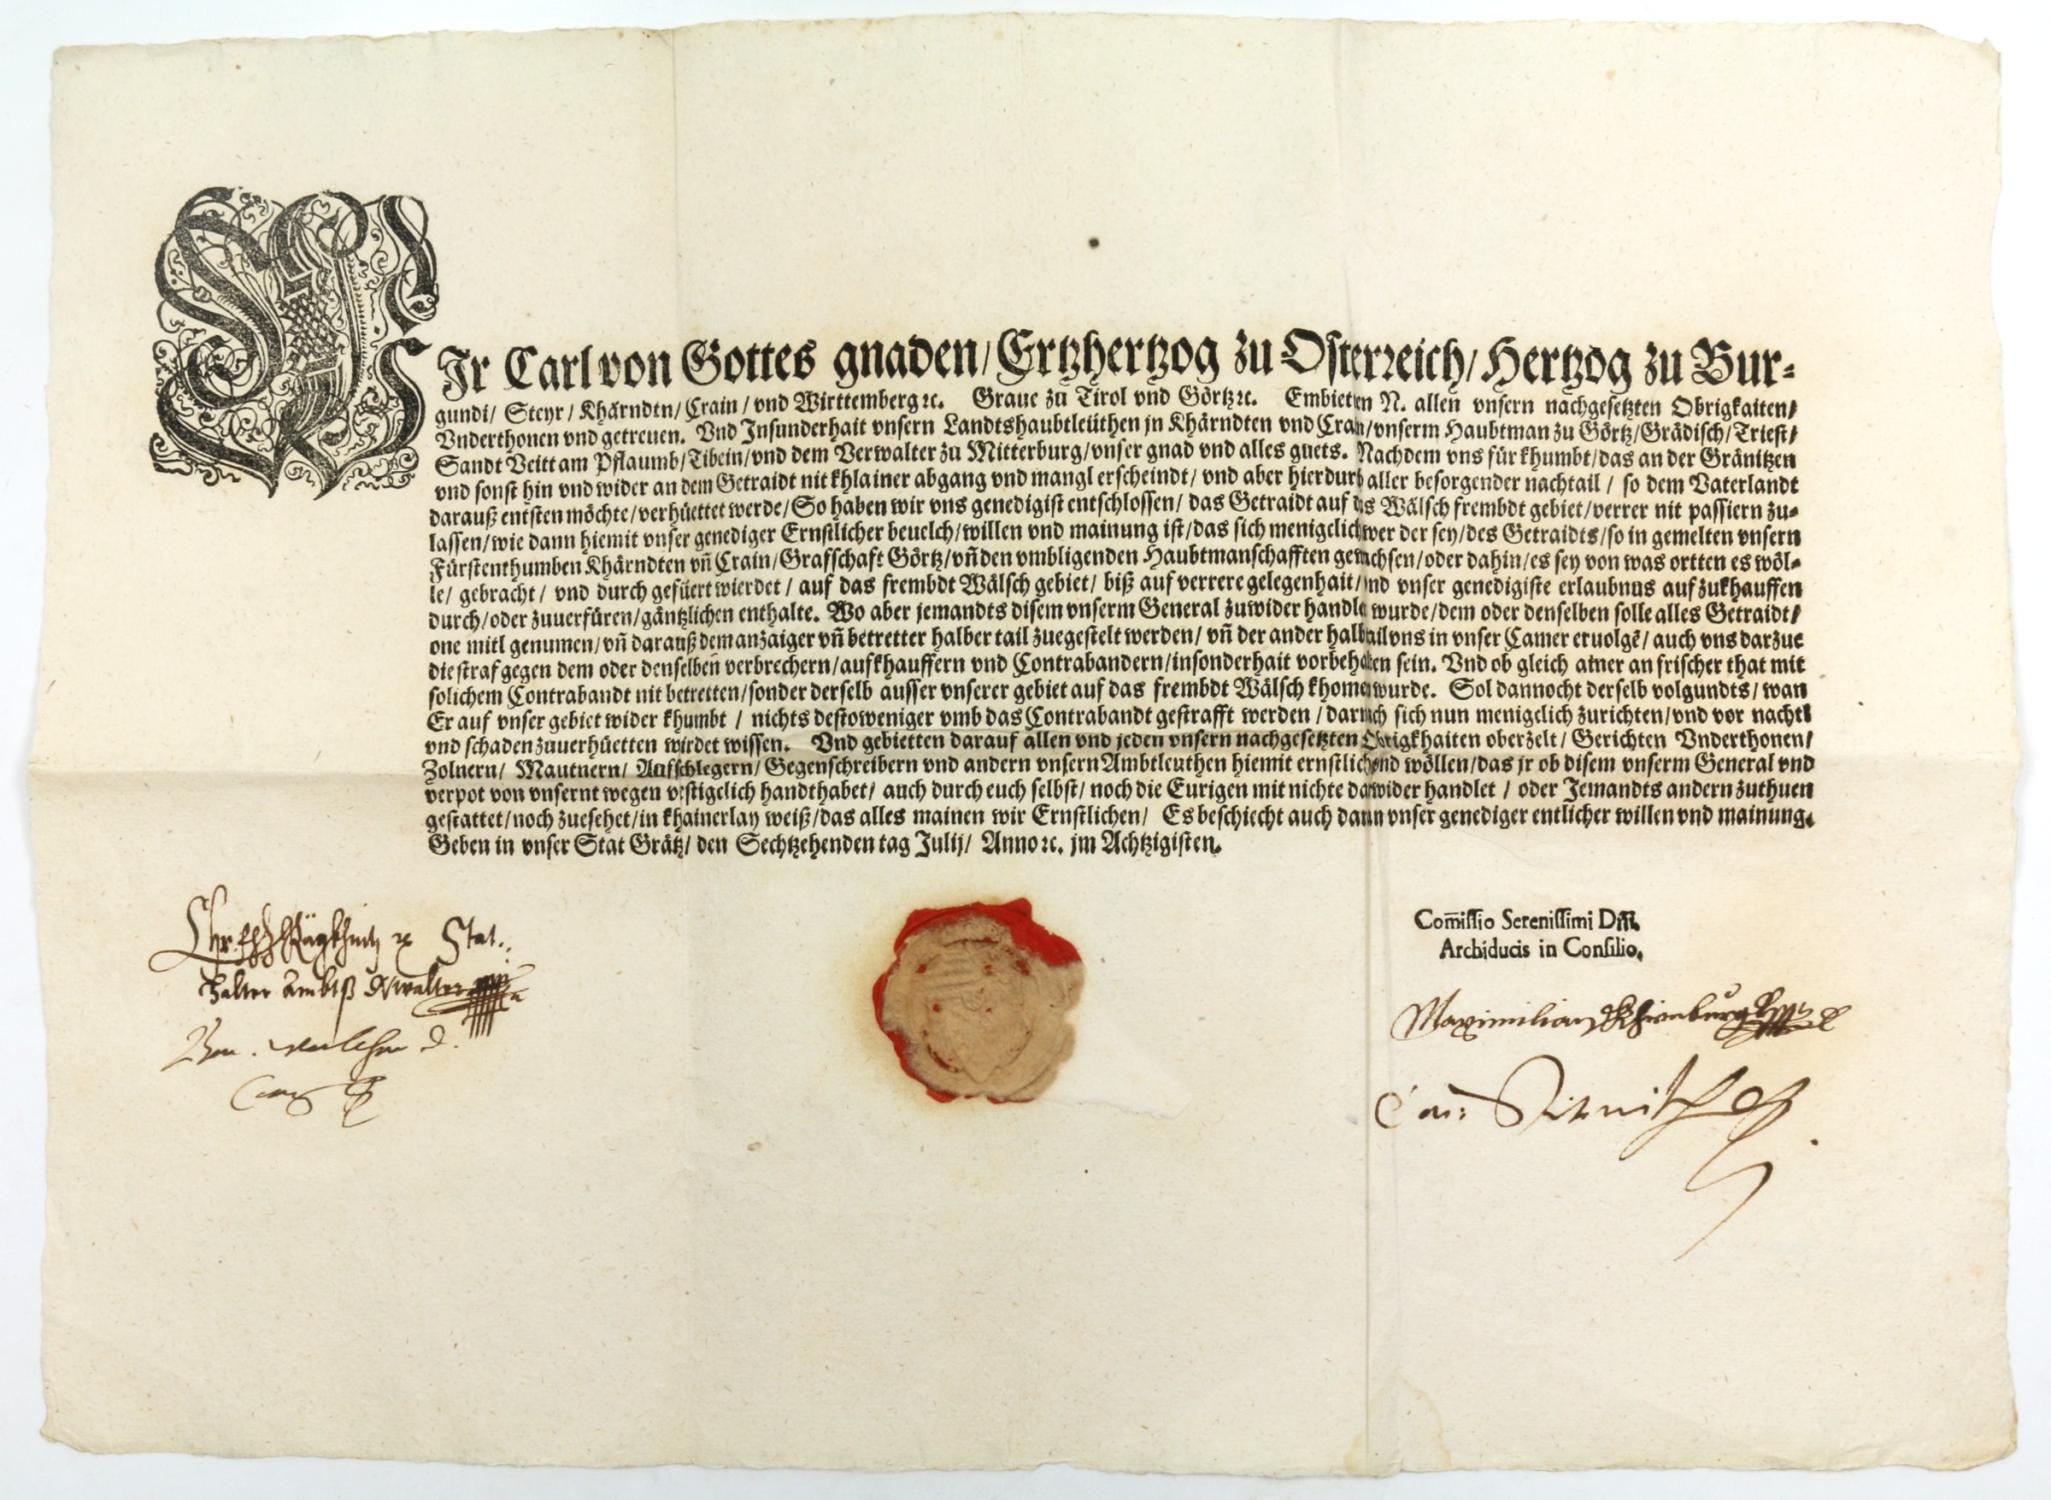 WIr Carl von Gottes gnaden/ Ertzhertzog zu Osterreich/ Hertzog zu Bur-
gundi/ Steyr/ Khärndtn/ Crain/ vnd Wirttemberg ꝛc. Graue zu Tirol vnd Görtz ꝛc. Embieten N. allen vnsern nachgesetzten Obrigkaiten/
Vnderthonen vnd getreuen. Vnd Insunderhait vnsern Landtshaubtleüthen jn Khärndten vnd Crain/ vnserm Haubtman zu Görtz/ Grädisch/ Triest/
Sandt Veitt am Pflaumb/ Tibein/ vnd dem Verwalter zu Mitterburg/ vnser gnad vnd alles guets. Nachdem vns für khumbt/ das an der Gränitzen
vnd sonst hin vnd wider an dem Getraidt nit khlainer abgang vnd mangl erscheindt/ vnd aber hierdurh aller besorgender nachtail/ so dem Vaterlandt
darauß entsten möchte/ verhüettet werde/ So haben wir vns genedigist entschlossen/ das Getraidt auf das Wälsch frembdt gebiet/ verrer nit passiern zu-
lassen/ wie dann hiemit vnser genediger Ernstlicher beuelch/ willen vnd mainung ist/ das sich menigelich wer der sey/ des Getraidts/ so in gemelten vnsern
Fürstenthumben Khärndten vñ Crain/ Grafschaft Görtz/ vñ den vmbligenden Haubtmanschafften gewachsen/ oder dahin/ es sey von was ortten es wöl-
le/ gebracht/ vnd durch gefüert wierdet/ auf das frembdt Wälsch gebiet/ biß auf verrere gelegenhait/ vnd vnser genedigiste erlaubnus auf zukhauffen
durch/ oder zuuerfüren/ gäntzlichen enthalte. Wo aber jemandts disem vnserm General zuwider handle wurde/ dem oder denselben solle alles Getraidt/
one mitl genumen/ vñ darauß dem anzaiger vñ betretter halber tail zuegestelt werden/ vñ der ander halb tail vns in vnser Camer eruolgē/ auch vns darzue
die straf gegen dem oder denselben verbrechern/ aufkhauffern vnd Contrabandern/ insonderhait vorbehalten sein. Vnd ob gleich ainer an frischer that mit
solichem Contrabandt nit betretten/ sonder derselb ausser vnserer gebiet auf das frembdt Wälsch khomen wurde. Sol dannocht derselb volgundts/ wan
Er auf vnser gebiet wider khumbt/ nichts destoweniger vmb das Contrabandt gestrafft werden/ darnach sich nun menigelich zurichten/ vnd vor nachtl
vnd schaden zuuerhüetten wirdet wissen. Vnd gebietten darauf allen vnd jeden vnsern nachgesetzten Obrigkhaiten oberzelt/ Gerichten Vnderthonen/
Zolnern/ Mautnern/ Aufschlegern/ Gegenschreibern vnd andern vnsern Ambtleuthen hiemit ernstlich vnd wöllen/ das jr ob disem vnserm General vnd
verpot von vnsernt wegen vestigelich handthabet/ auch durch euch selbst/ noch die Eurigen mit nichte dawider handlet/ oder Jemandts andern zuthuen
gestattet/ noch zuesehet/ in khainerlay weiß/ das alles mainen wir Ernstlichen/ Es beschiecht auch dann vnser genediger entlicher willen vnd mainung.
Geben in vnser Stat Grätz/ den Sechtzehenden tag Julij/ Anno ꝛc. jm Achtzigisten.
Com̄issio Serenissimi Dñi.
Archiducis in Consilio.
Stat-
halter Ambts
Maximilian